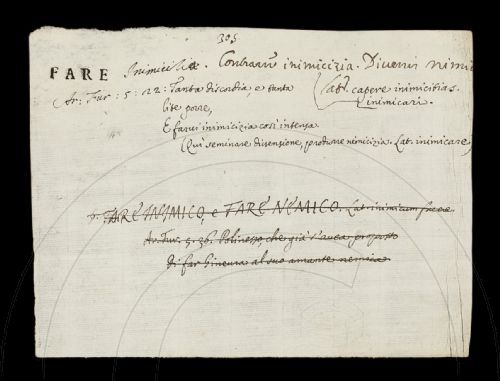 305
FARE Inimicizia. Contrarre inimicizia. Divenir nimic
Ar: Fur: 5: 22: Tanta discordia, e tanta (Lat. capere inimicitias.
lite porre, inimicari.
E farui inimicizia così intensa.
(Quì seminare dissensione, produrre nimicizia. Lat. inimicare)
FARE INIMICO, e FARE NEMICO. Lat. inimicum facere.
Ar. Fur. 5. 26. Polinesso, che già s'auea proposto
di far Gineura al suo amante nemica